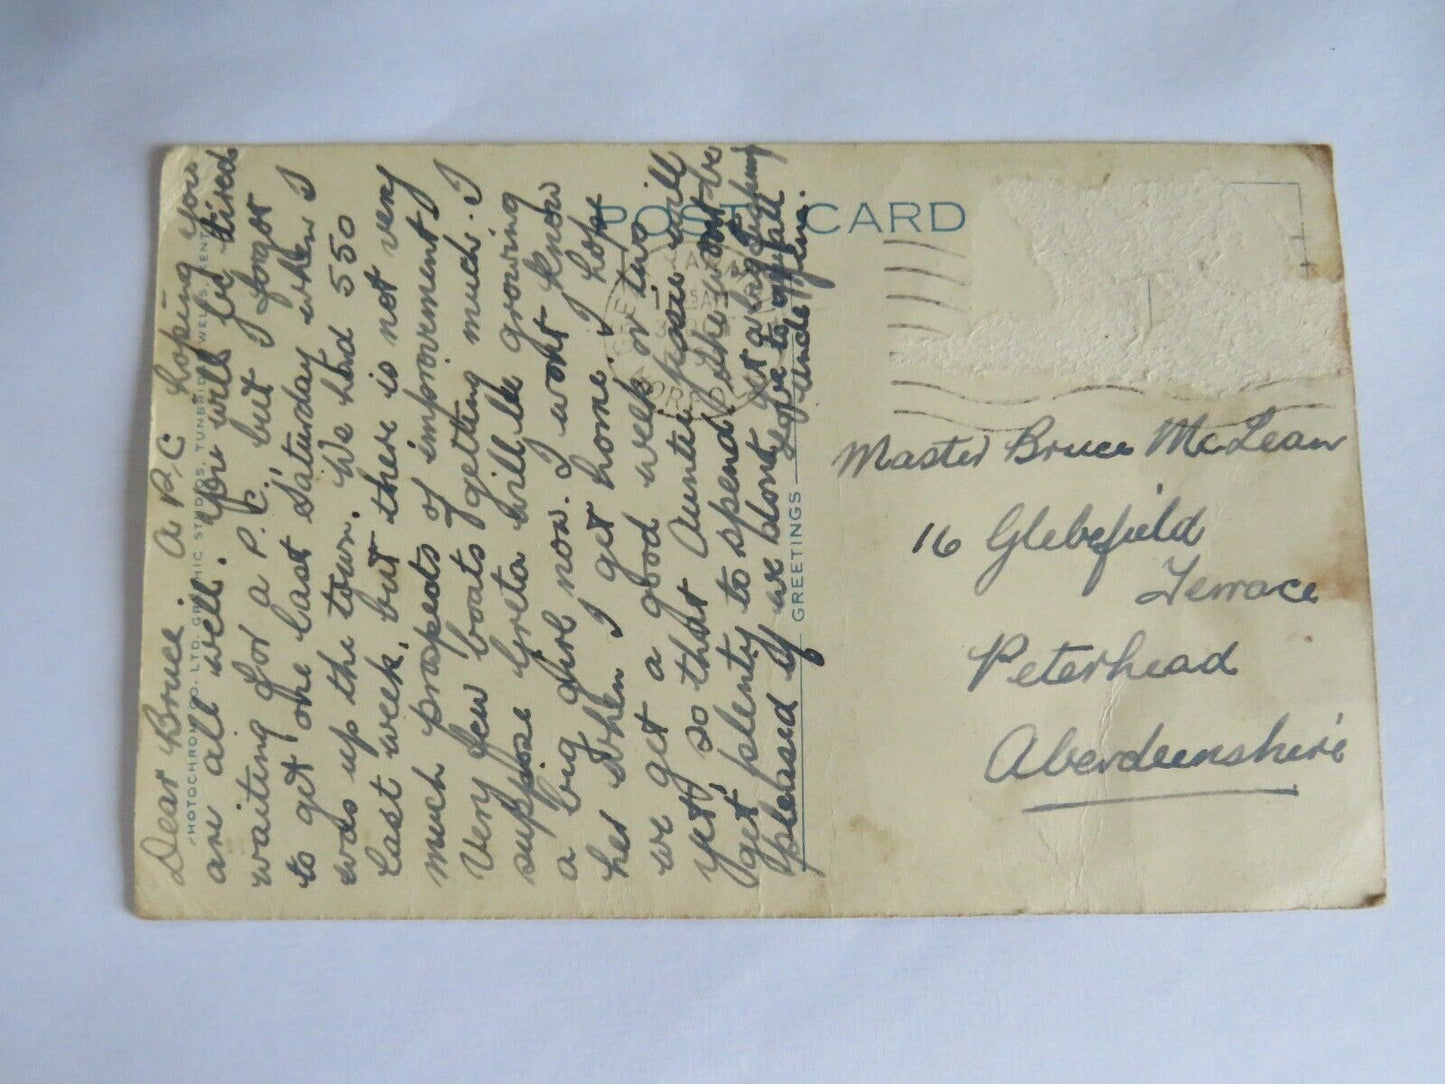 Dear Bruce. A P.C hoping you
are all well. You will be tired
waiting for a P.C. but I forgot
to get one last Saturday when I
was up the town. We had 550
last week, but there is not very
much prospects of improvement,
Very few boats getting much. I
suppose Greta will be growing
a big girl now. I wont know
her when I get home. I hope
we get a good week or two
yet so that Auntie will
get plenty to spend
pleased if we dont get a big fishing
Love to you all
Uncle
POST CARD
GREAT YARMOUTH
NORFOLK
PHOTOCHROM CO. LTD. GRAPHIC STUDIOS, TUNBRIDGE WELLS, KENT
GREETINGS
Master Bruce McLean
16 Glebefield
Terrace
Peterhead
Aberdeenshire